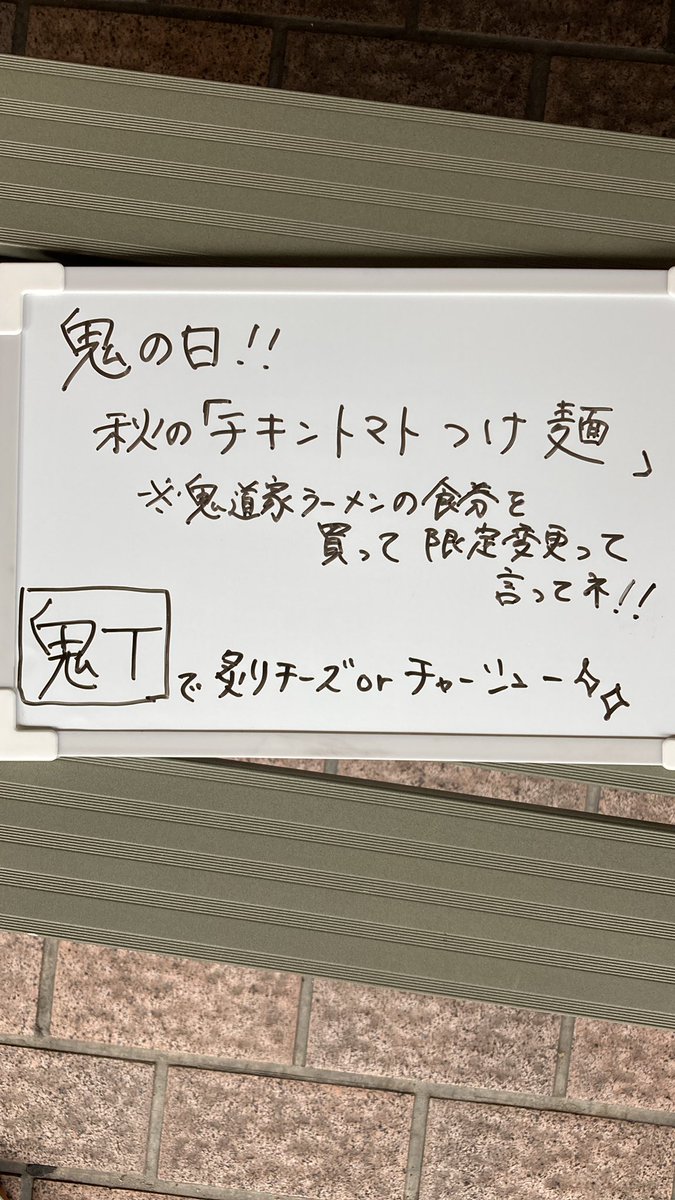 鬼の日!!
秋の「チキントマトつけ麺」
※鬼道家ラーメンの食券を
買って限定変更って
言ってネ!!
鬼Tで炙りチーズorチャーシュー✧✧